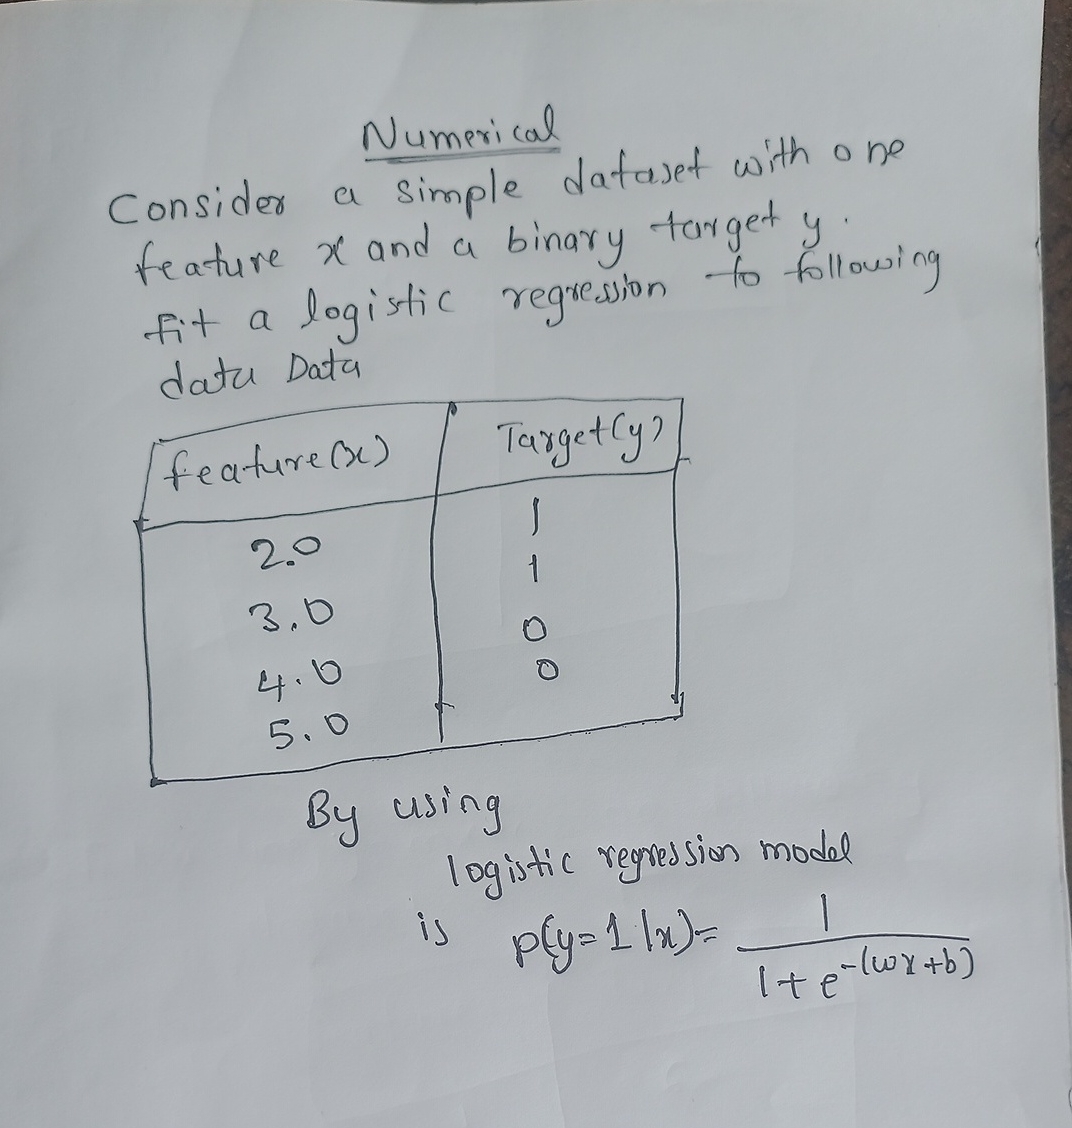 Numerical
Consider a simple dataset with one
feature x and a binary target y.
fit a logistic regression to following
data Data
feature(x) Target(y)
2.0 1
3.0 1
4.0 0
5.0 0
By using
logistic regression model
is p(y=1|x)= 1 / 1+e^-(wx+b)